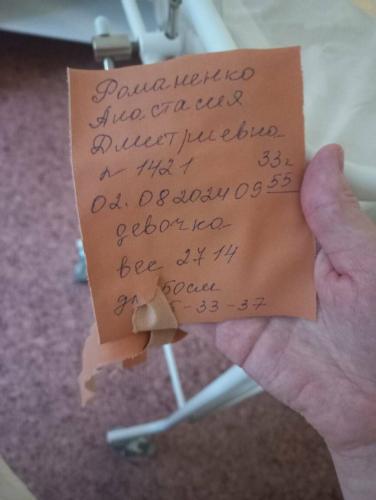 Романенко
Анастасия
Дмитриевна
N 1421 33г
02.082024 09 55
девочка
вес 2714
50см
-33-37